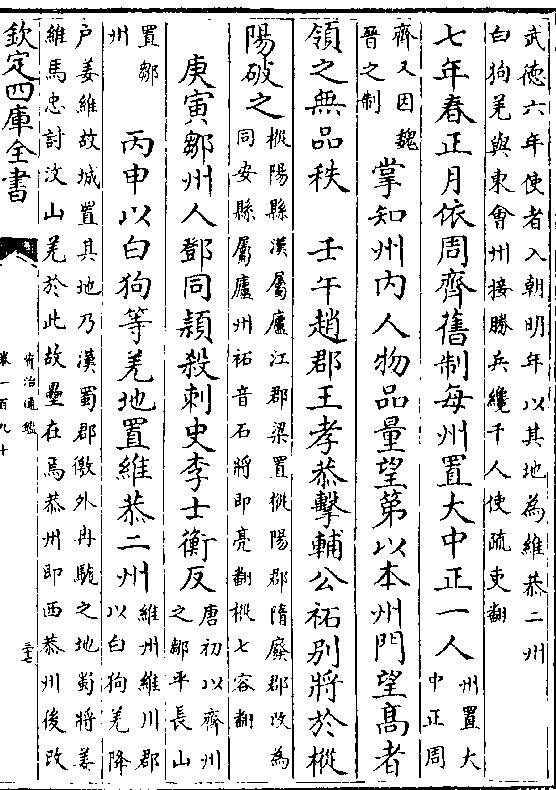 武徳六年使者入朝明年以其地為維恭二州
白狗羌與東會州接勝兵纔千人使疏吏翻
七年春正月依周齊舊制每州置大中正一人
州置大
中正周
齊又因魏
晉之制
掌知州内人物品量望第以本州門望髙者
領之無品秩　壬午趙郡王孝恭擊輔公祏别將於樅
陽破之
樅陽縣漢屬廬江郡梁置樅陽郡隋廢郡改為
同安縣屬廬州祏音石將即亮翻樅七容翻
庚寅鄒州人鄧同頴殺刺史李士衡反
唐初以齊州
之鄒平長山
置鄒
州
丙申以白狗等羌地置維恭二州
維州維川郡
以白狗羌降
户姜維故城置其地乃漢蜀郡徼外冉駹之地蜀將姜
維馬忠討汶山羌於此故壘在焉恭州即西恭州後改
欽定四庫全書
資治通鑑
卷一百九十
三七